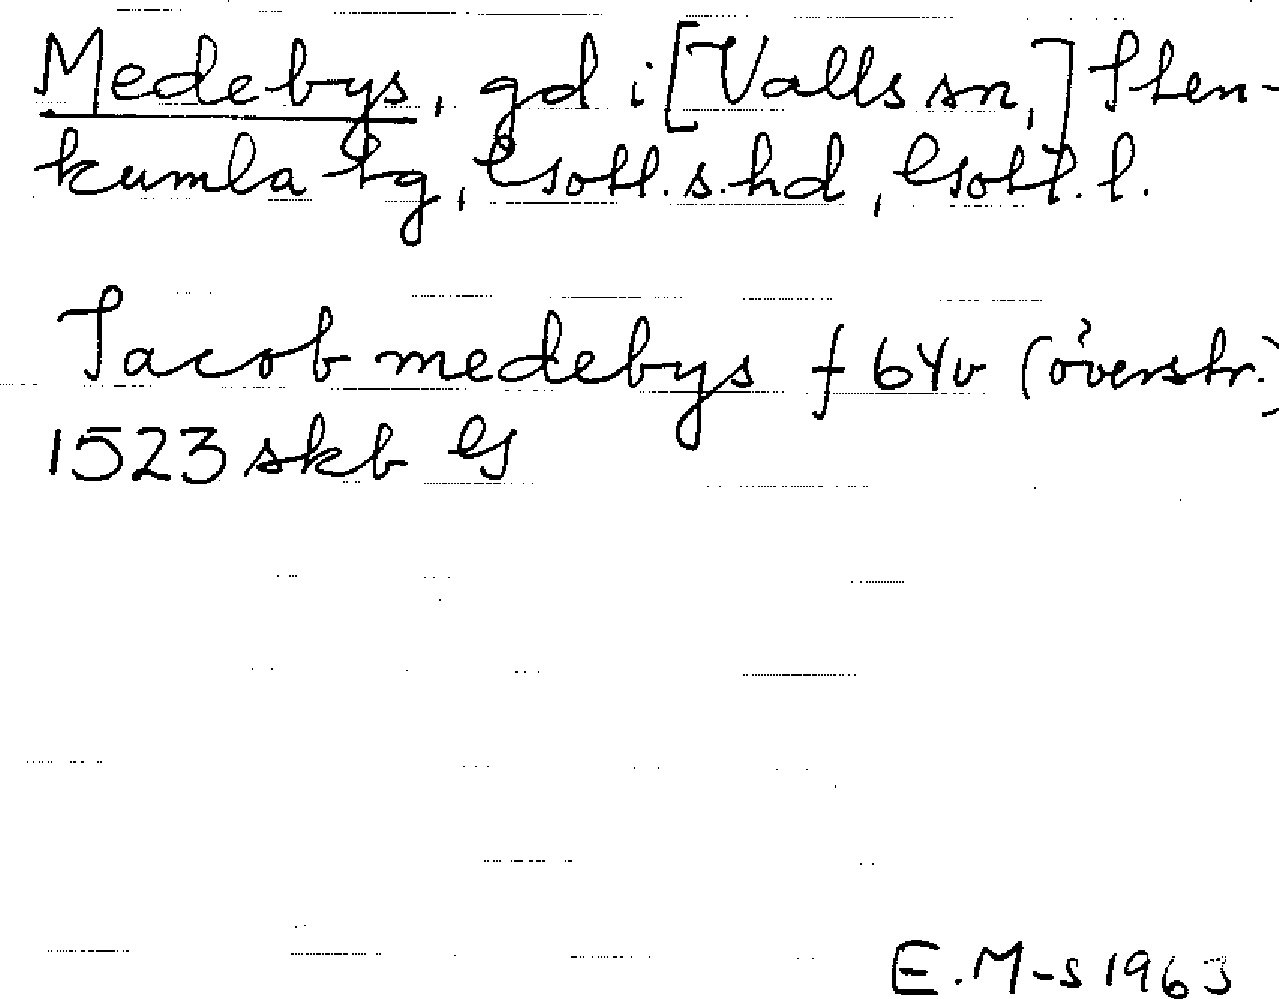 Medebys, gd i [Valls sn,] Sten-
kumla tg, Gotl.s.hd, Gotl.l.
Jacob medebys f 64v (överstr.)
1523 skb G
E.M-s 1963